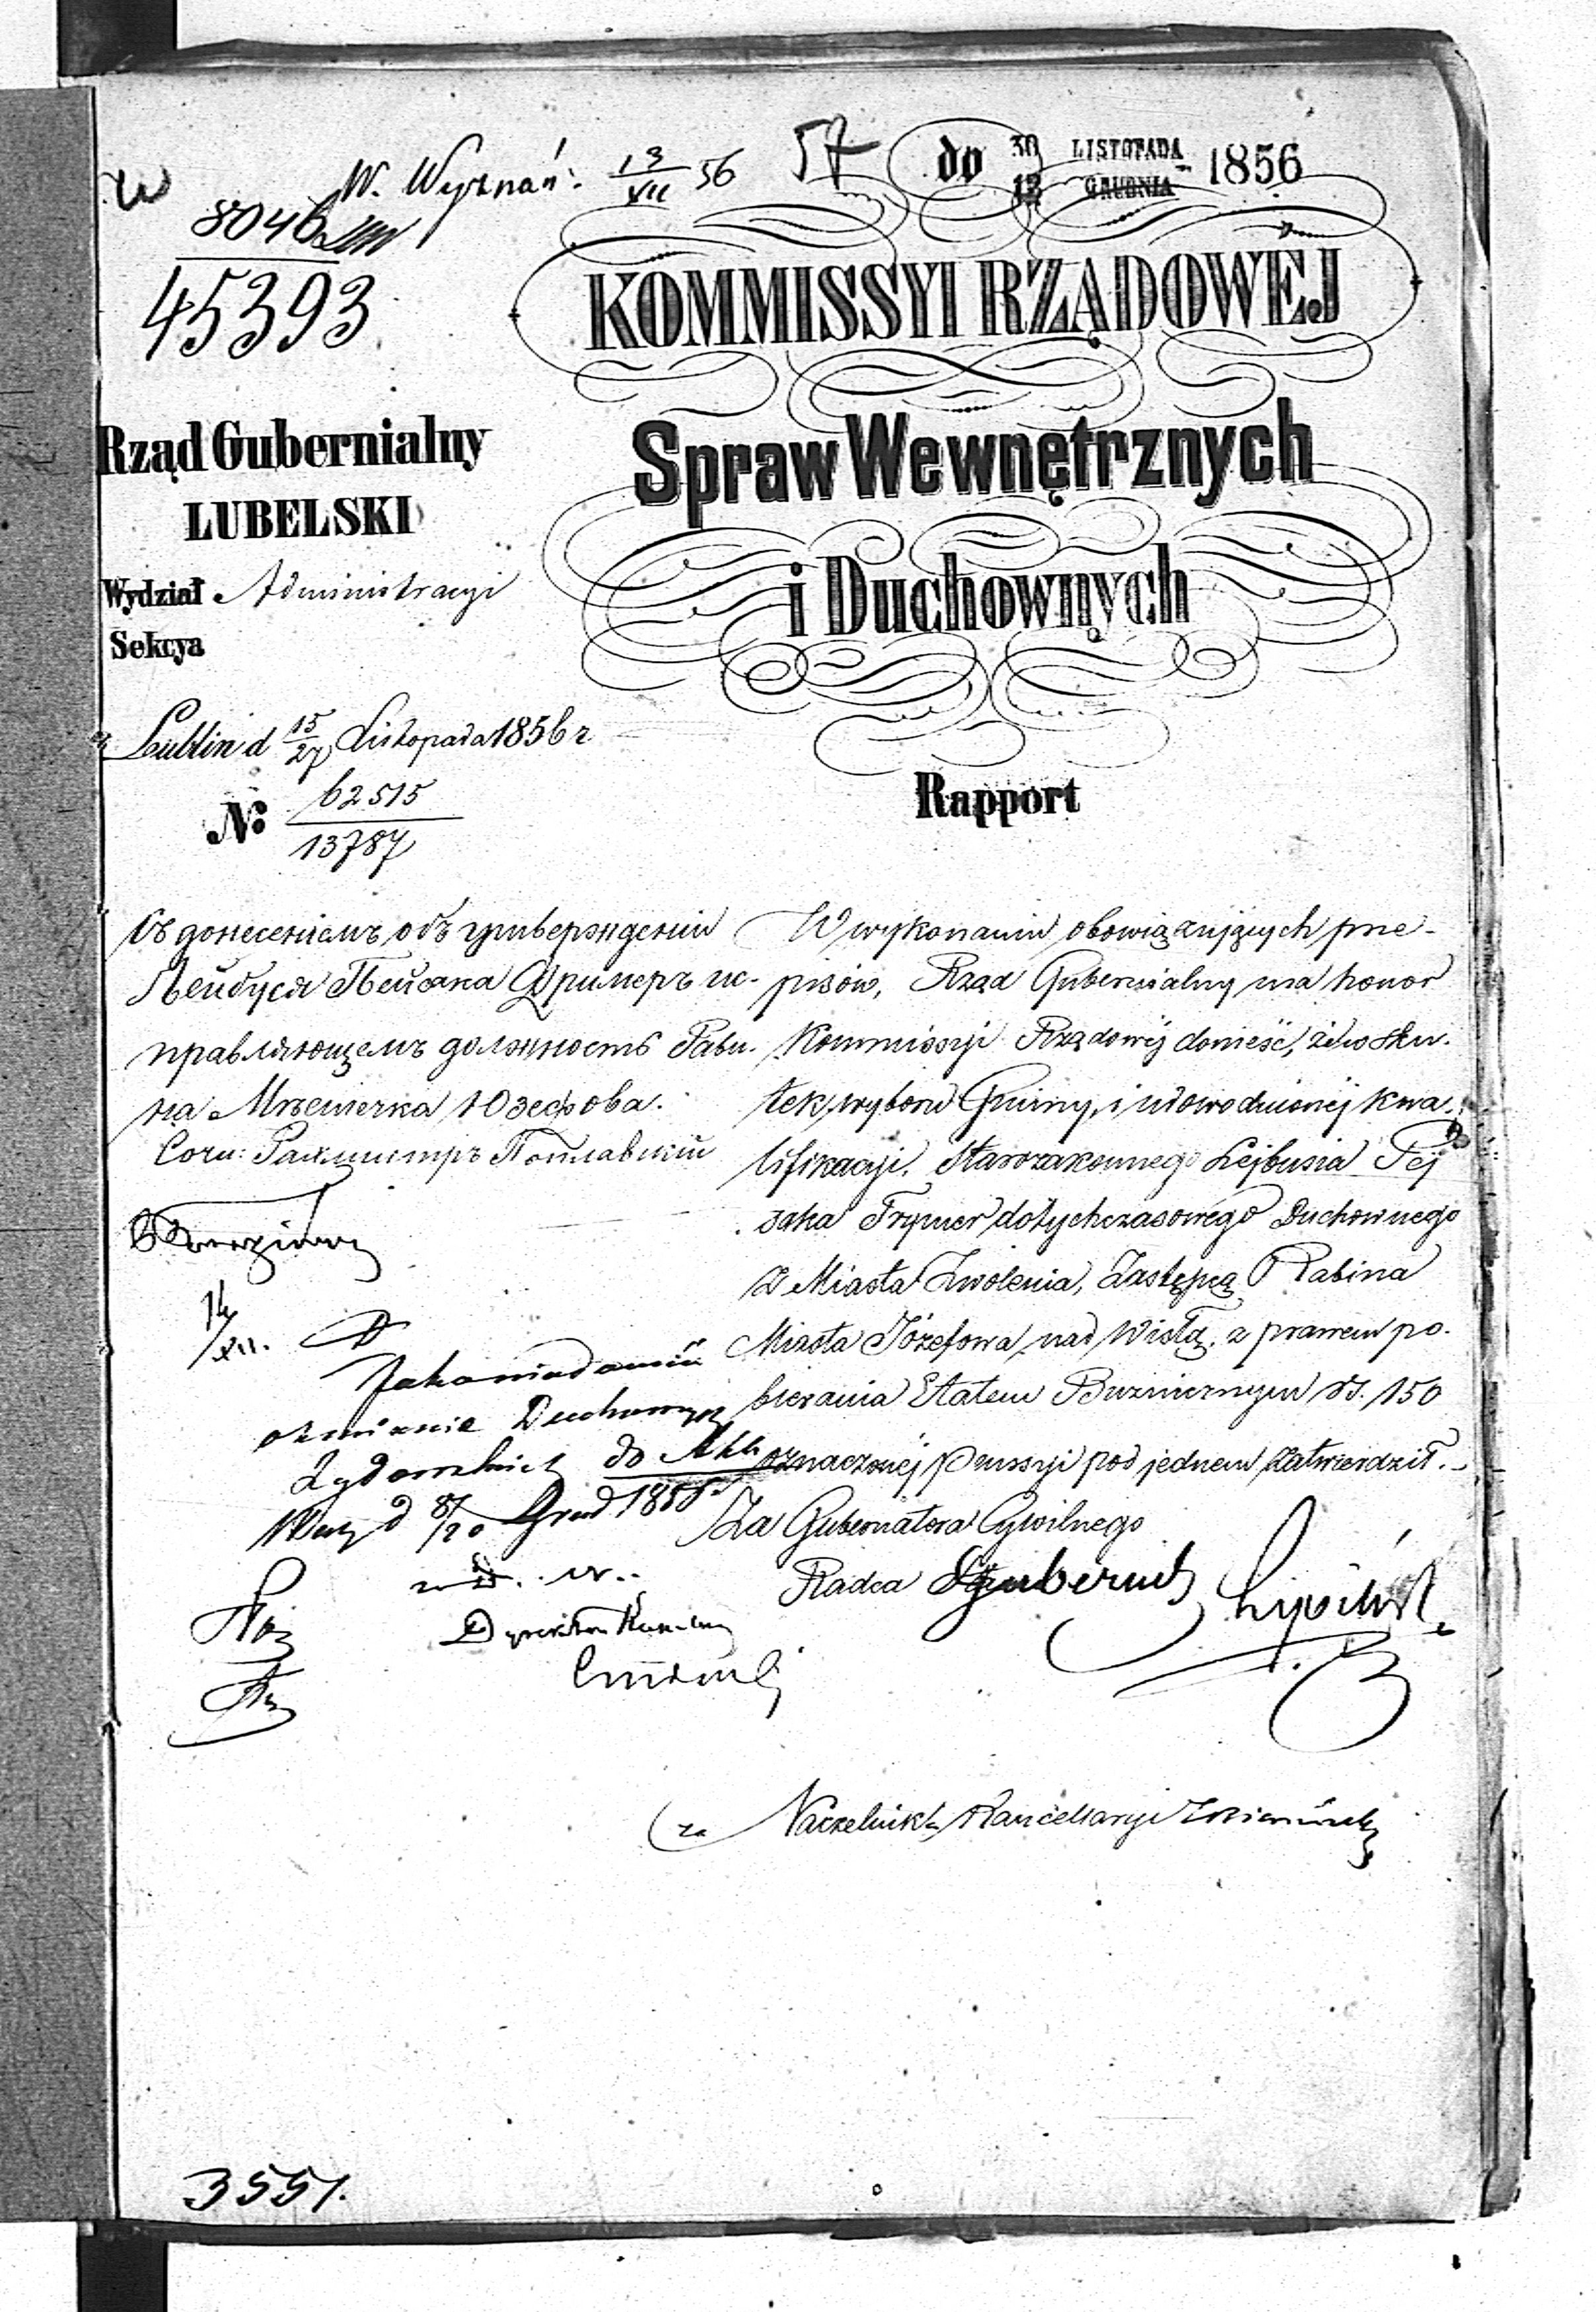 W. Wyznań: 13/XII 56
57
do 30/12 LISTOPADA/GRUDNIA 1856
8046
45393
KOMMISSYI RZĄDOWEJ
Spraw Wewnętrznych
i Duchownych
Rapport
Rząd Gubernialny
LUBELSKI
Wydział Administracyi
Sekcya
Lublin d 15/27 Listopada 1856 r
№ 62515/13787
Съ донесеніемъ объ утвержденіи
Лейбуся Пейсака Фримеръ ис-
правляющемъ должность Раби-
на Мѣстечка Юзефова.
W wykonaniu obowiązujących prze-
pisów, Rząd Gubernialny ma honor
Kommissyi Rządowéj donieść, że w sku-
tek wyboru Gminy, i udowodnionéj kwa-
lifikacyi, Starozakonnego Lejbusia Pej
saka Frymer dotychczasowego Duchownego
z Miasta Zwolenia, Zastępcą Rabina
Miasta Józefowa nad Wisłą, z prawem po-
bierania Etatem Bużnicznym rs. 150
oznaczonéj pensyi pod jednem zatwierdził.
Za Gubernatora Cywilnego
Radca Gubernial
14/XII.
o zmianie Duchownych
Żydowskich do Akt
d 8/20 Grud 1856
Dyrektor
za Naczelnika Kancellaryi
3551.